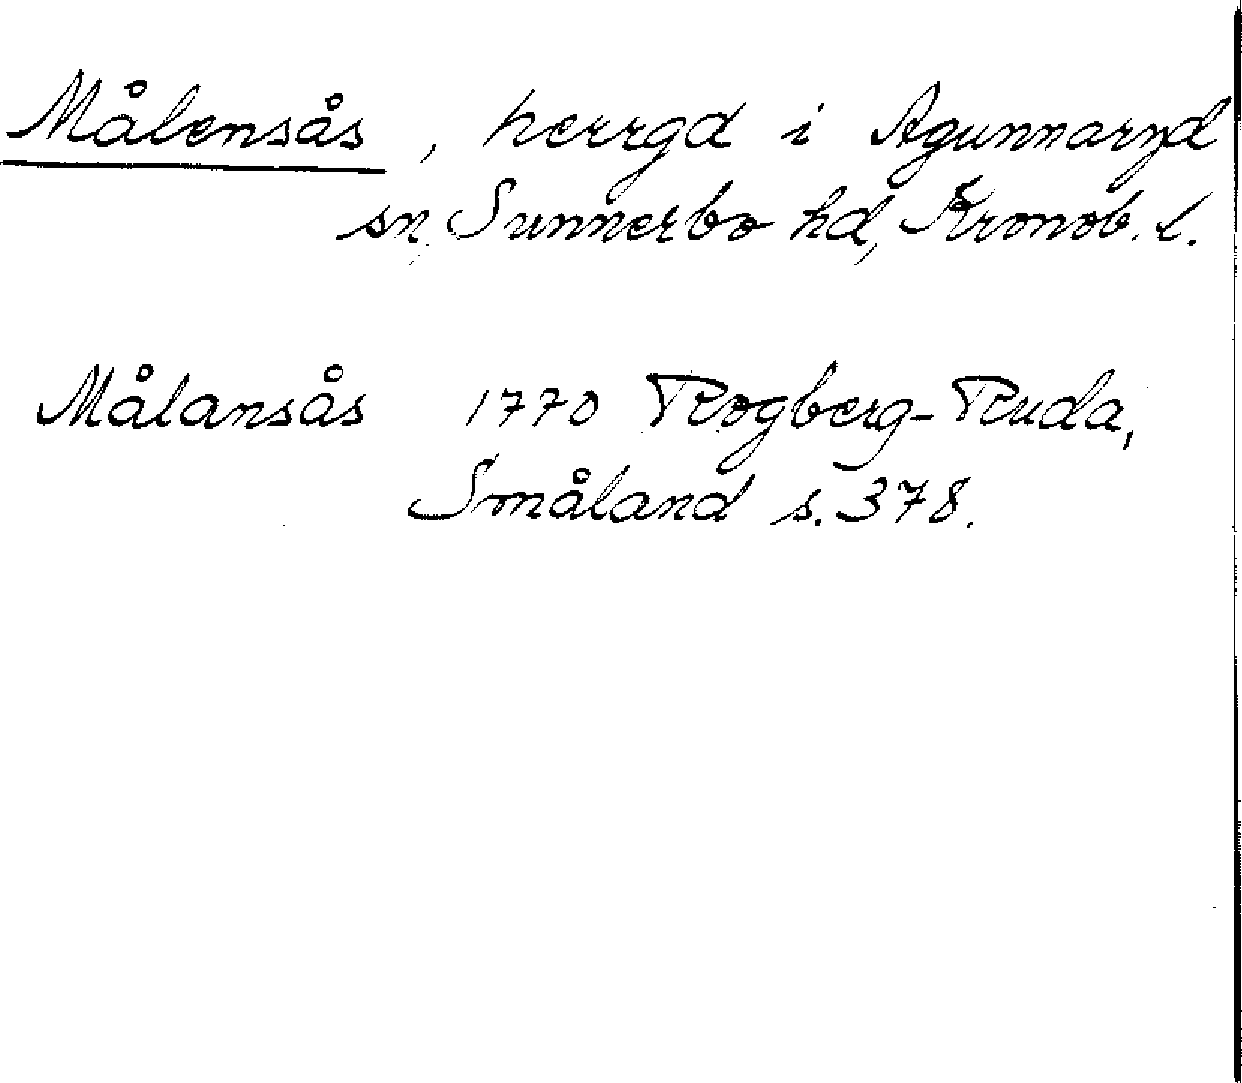 Målensås, herrgd i Agunnaryd
sn, Sunnerbo hd, Kronob. l.
Målansås 1770 Rogberg-Ruda,
Småland s. 378.